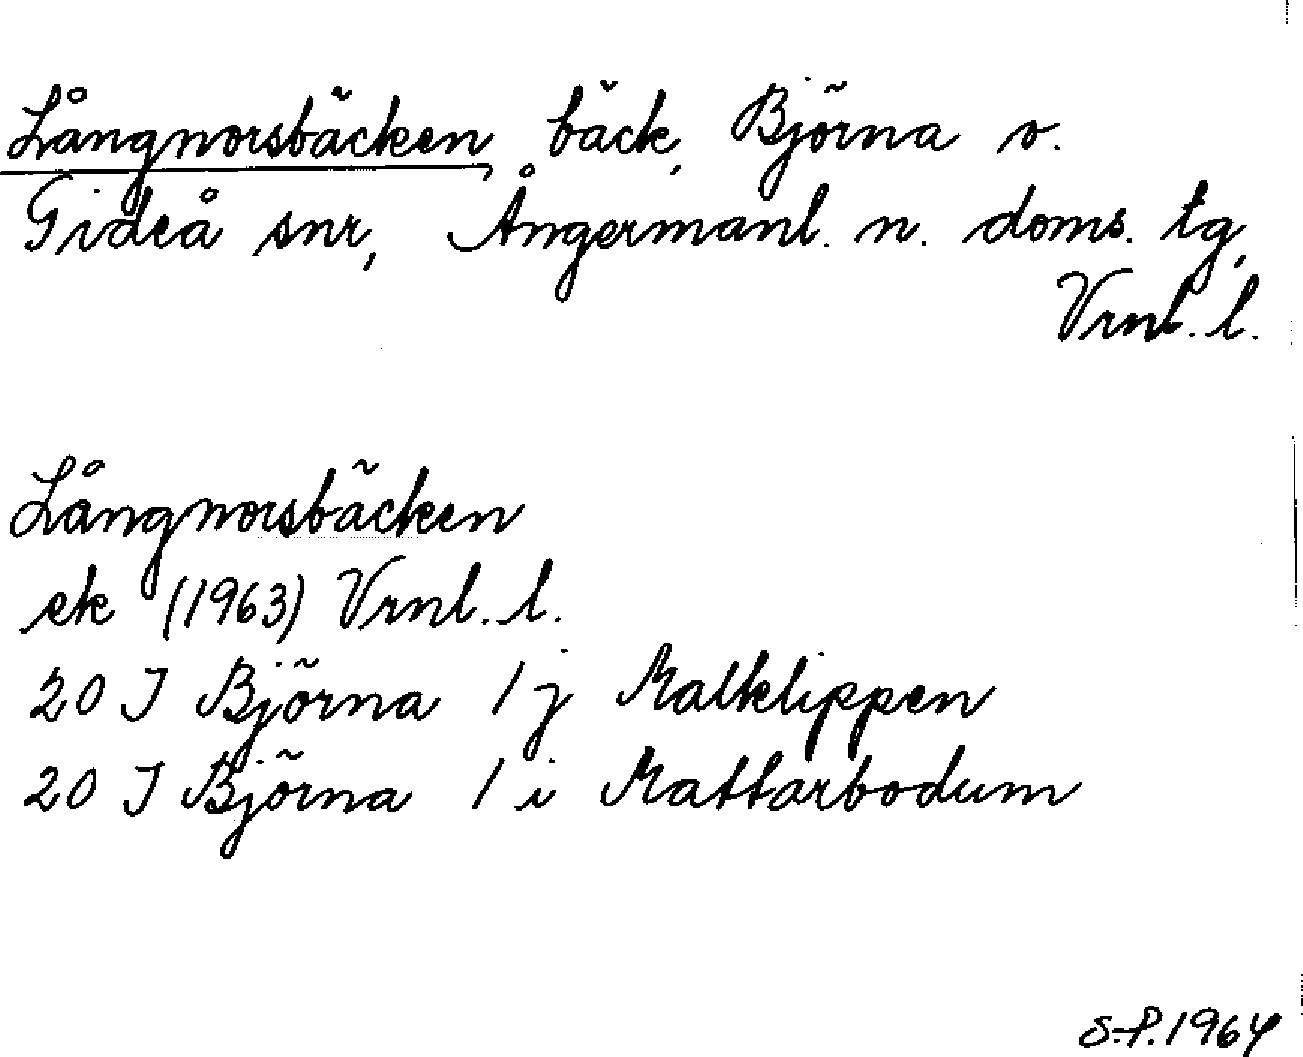 Långnorsbäcken, bäck, Björna o.
Gideå snr, Ångermanl. n. doms. tg,
Vrnl. l.
Långnorsbäcken
ek (1963) Vrnl. l.
20 I Björna 1 j Malklippen
20 I Björna 1 i Mattarbodum
S.P. 1964